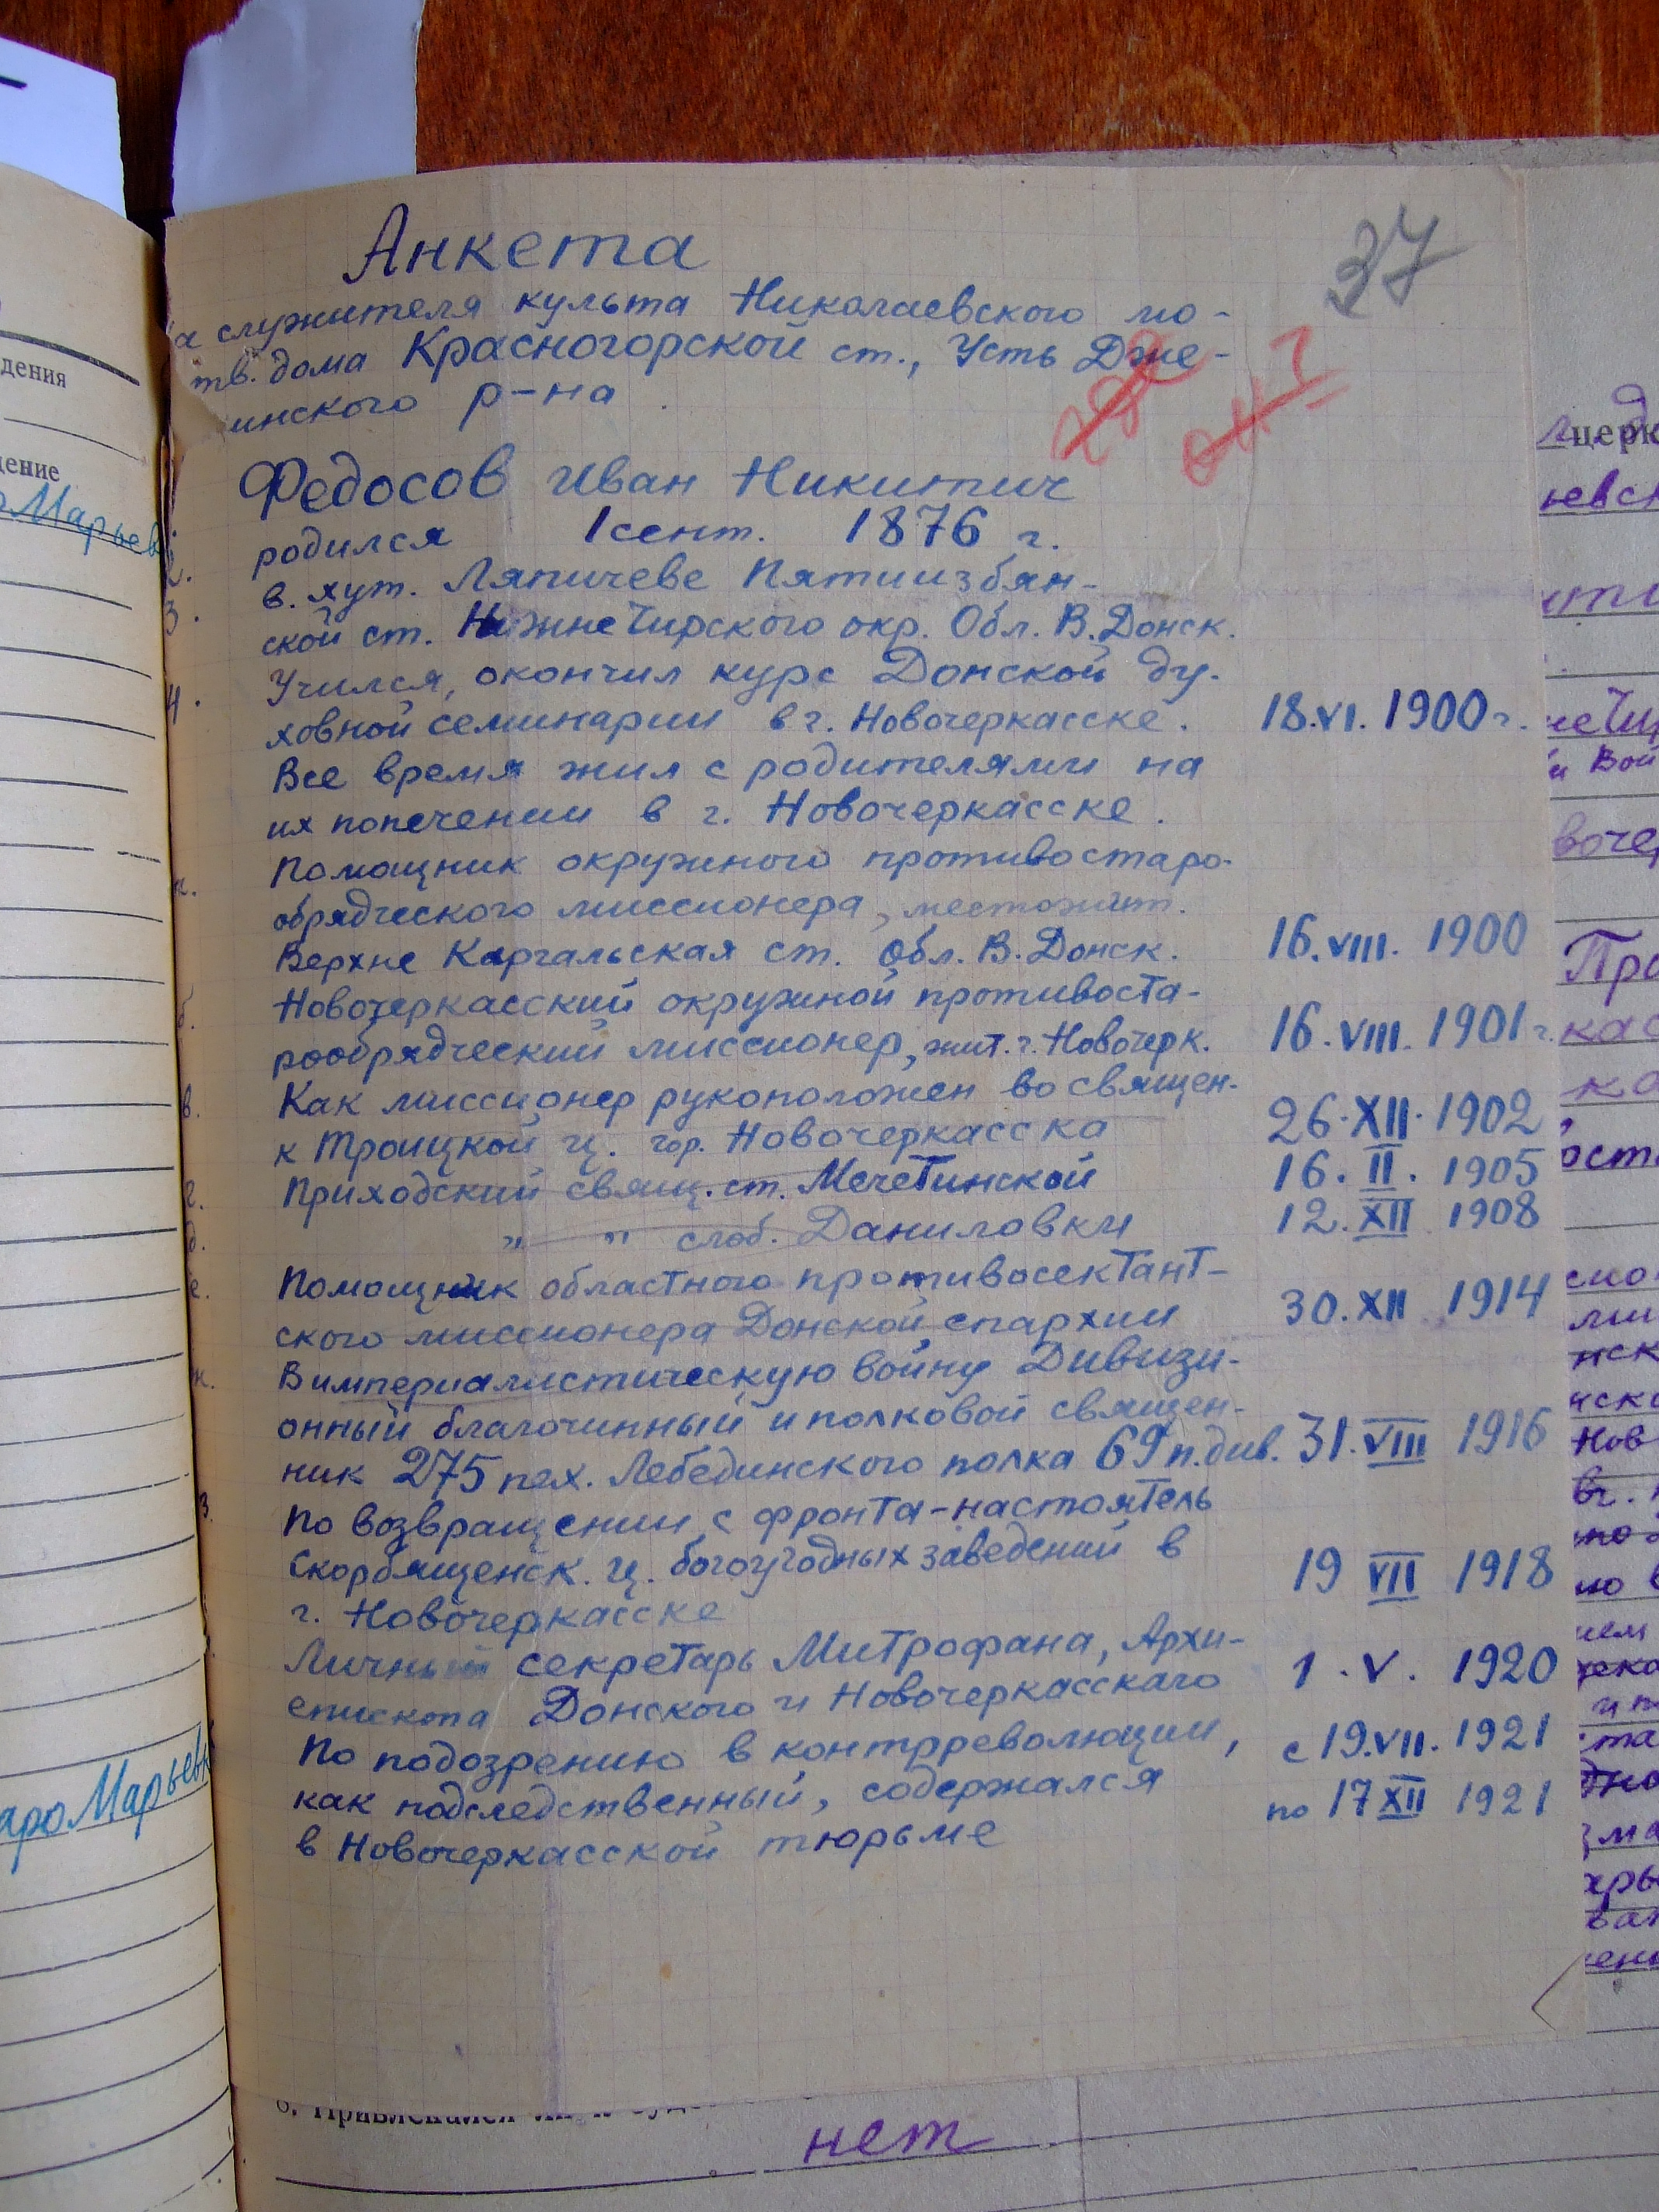 Анкета
37
а служителя культа Николаевского мо-
тв. дома Красногорской ст., Усть Дже-
инского р-на
Федосов Иван Никитич
родился 1 сент. 1876 г.
2.
в. хут. Ляпичеве Пятиизбян-
3.
ской ст. Нижне Чирского окр. Обл. В. Донск.
4.
Учился, окончил курс Донской ду-
ховной семинарии в г. Новочеркасске. 18.VI.1900 г.
Все время жил с родителями на
их попечении в г. Новочеркасске.
Помощник окружного противостаро-
обрядческого миссионера, местожит.
Верхне Каргальская ст. Обл. В. Донск. 16.VIII.1900
б.
Новочеркасский окружной противоста-
рообрядческий миссионер, жит. г. Новочерк. 16.VIII.1901 г.
в.
Как миссионер рукоположен во священ-
к Троицкой ц. гор. Новочеркасска 26.XII.1902
г.
Приходский свящ. ст. Мечетинской 16.II.1905
д.
" " слоб. Даниловки 12.XII 1908
е.
Помощник областного противосектант-
ского миссионера Донской епархии 30.XII 1914
ж.
В империалистическую войну Дивизи-
онный благочинный и полковой священ-
ник 275 пех. Лебединского полка 69 п. див. 31.VIII 1916
з.
По возвращении с фронта - настоятель
Скорбященск. ц. богоугодных заведений в
г. Новочеркасске 19 VII 1918
Личный секретарь Митрофана, Архи-
епископа Донского и Новочеркасскаго 1.V.1920
По подозрению в контрреволюции, с 19.VII.1921
как подследственный, содержался по 17 XII 1921
в Новочеркасской тюрьме
нет
дения
Марьев
Марьевк